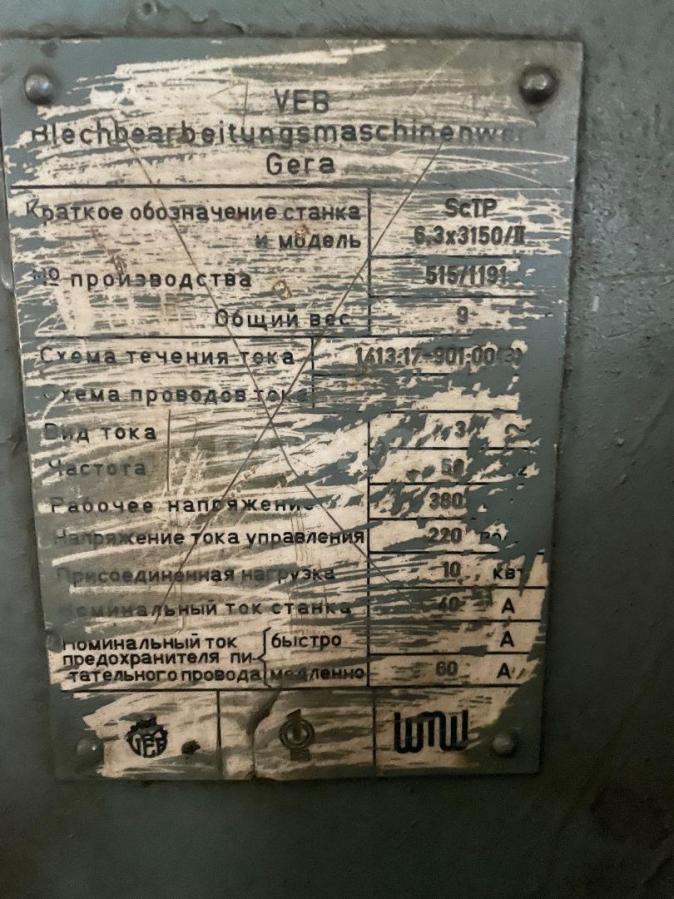 VEB
Blechbearbeitungsmaschinenwerk
Gera
Краткое обозначение станка ScTP
и модель 6,3x3150/II
№ производства 515/1191
Общий вес 9
Схема течения тока 1413.17-901.00(3)
Схема проводов тока
Вид тока 3
Частота 50
Рабочее напряжение 380
Напряжение тока управления 220
Присоединенная нагрузка 10 квт
Номинальный ток станка 40 А
Номинальный ток быстро А
предохранителя пи-
тательного провода медленно 60 А
VEB WMW